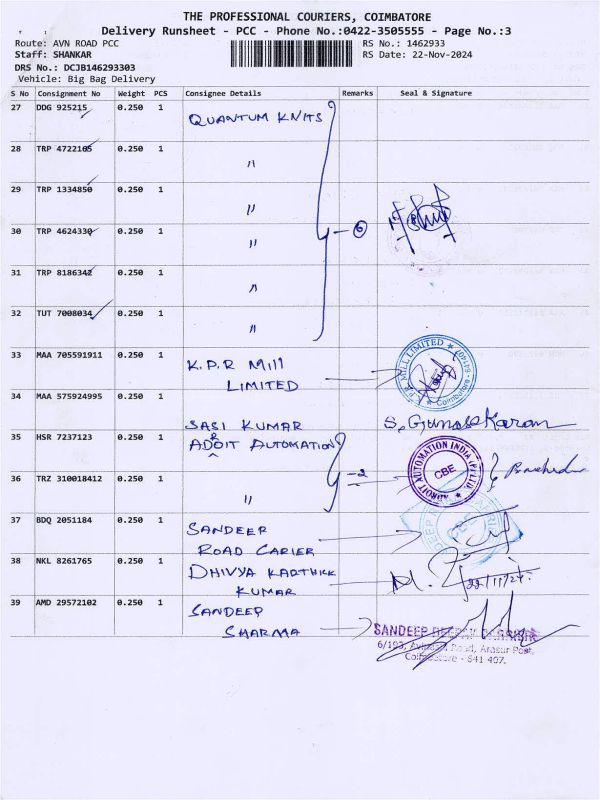 THE PROFESSIONAL COURIERS, COIMBATORE
Delivery Runsheet - PCC - Phone No.:0422-3505555 - Page No.:3
Route: AVN ROAD PCC RS No.: 1462933
Staff: SHANKAR RS Date: 22-Nov-2024
DRS No.: DCJB146293303
Vehicle: Big Bag Delivery
S No Consignment No Weight PCS Consignee Details Remarks Seal & Signature
27 DDG 925215 0.250 1 QUANTUM KNITS
28 TRP 4722105 0.250 1 "
29 TRP 1334850 0.250 1 "
30 TRP 4624330 0.250 1 " - 6
31 TRP 8186342 0.250 1 "
32 TUT 7008034 0.250 1 "
33 MAA 705591911 0.250 1 K.P.R Mill
LIMITED
MILL LIMITED
Coimbatore - 641407
34 MAA 575924995 0.250 1 SASI KUMAR S. Gunasekaran
35 HSR 7237123 0.250 1 ADROIT AUTOMATION
ADROIT AUTOMATION INDIA (P) LTD.
CBE
36 TRZ 310018412 0.250 1 " - 2
37 BDQ 2051184 0.250 1 SANDEEP
ROAD CARIER
38 NKL 8261765 0.250 1 DHIVYA KARTHIK
KUMAR 22/11/24
39 AMD 29572102 0.250 1 SANDEEP
SHARMA
SANDEEP
6/193, Road, Arasur Post,
Coimbatore - 641 407.